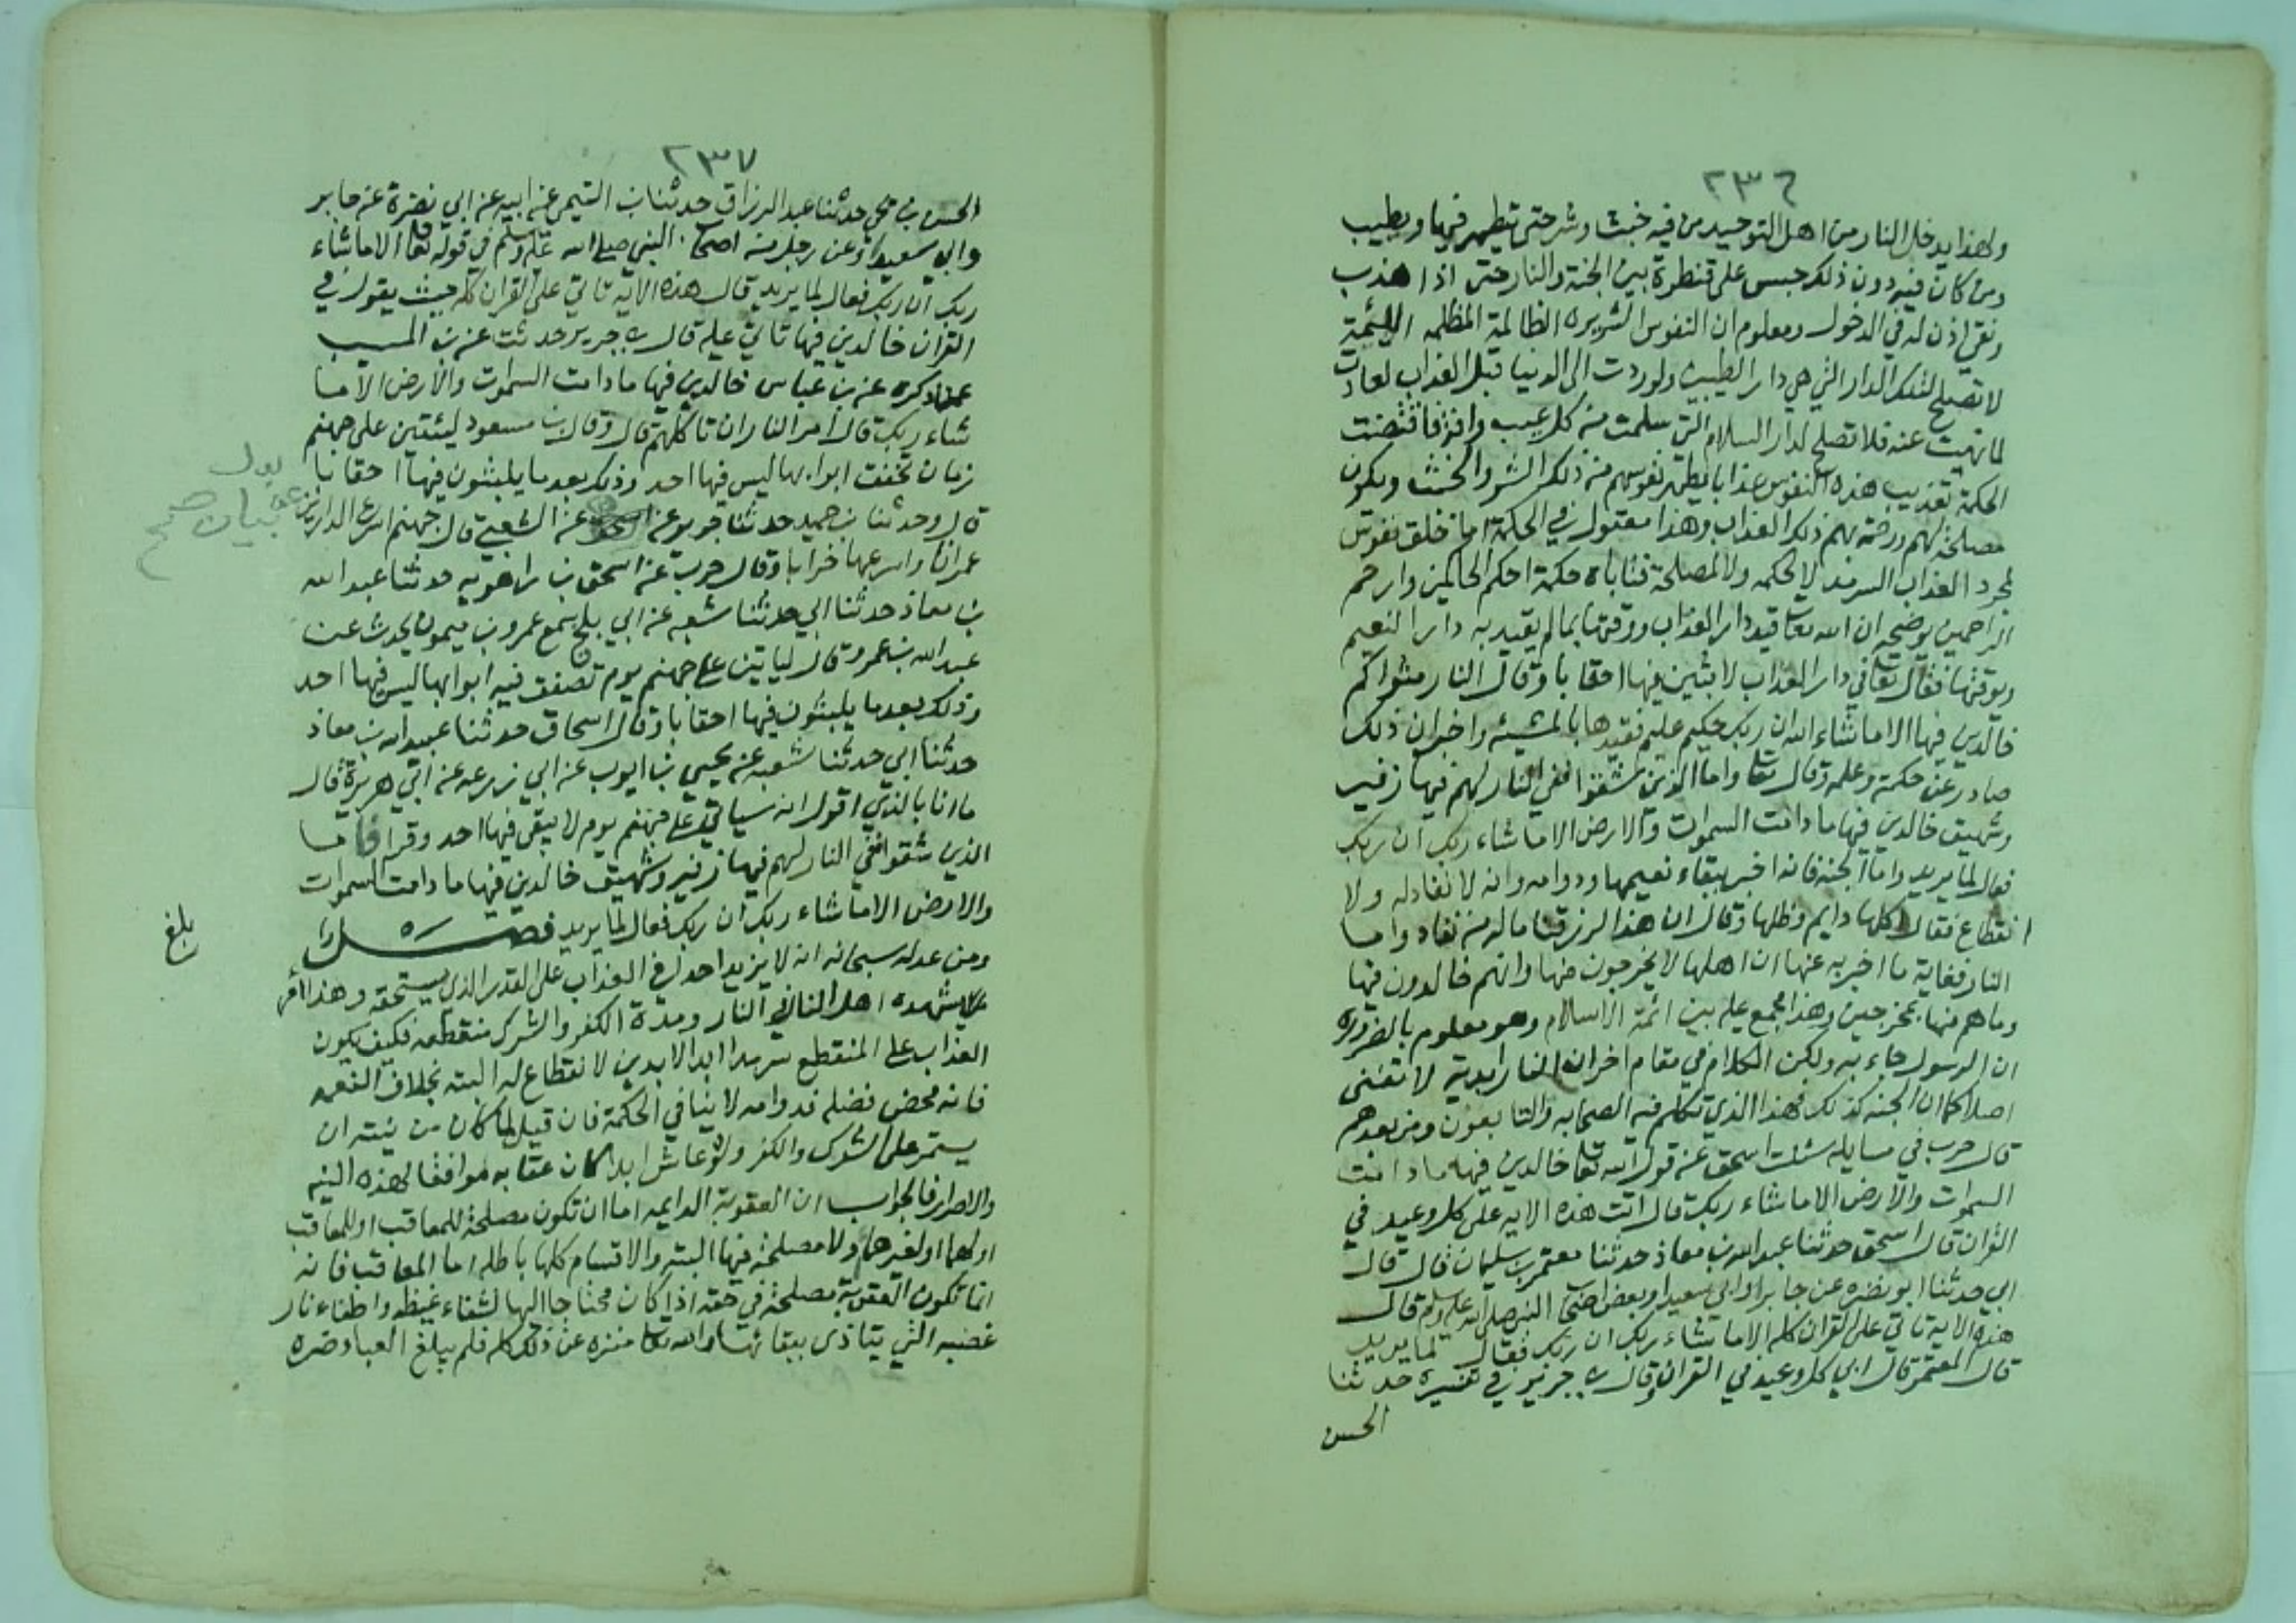 ٢٣٦
ولهذا يدخل النار من اهل التوحيد من فيه خبث وشر حتى يتطهر فيها ويطيب
ومن كان فيه دون ذلك حبس على قنطرة بين الجنة والنار حتى اذا هذب
ونقي اذن له في الدخول ومعلوم ان النفوس الشريره الظالمة المظلمه الاثيمة
لا تصلح لتلك الدار التي هي دار الطيبين ولو ردت الى الدنيا قبل العذاب لعادت
لما نهيت عنه فلا تصلح لدار السلام التي سلمت من كل عيب وافة فاقتضت
الحكمة تعذيب هذه النفوس عذابا يطهر نفوسهم من ذلك الشر والخبث ويكون
مصلحة لهم ورحمة بهم ذلك العذاب وهذا معقول في الحكمة اما خلق نفوس
لمجرد العذاب السرمد لا لحكمه ولا لمصلحة فتاباه حكمة احكم الحاكمين وارحم
الراحمين يوضحه ان الله تعا قيد دار العذاب ووقتها بما لم يقيد به دار النعيم
ويوقتها فقال تعا في دار العذاب لابثين فيها احقابا وقال النار مثواكم
خالدين فيها الا ما شاء الله ان ربك حكيم عليم فقيدها بالمشيئه واخبر ان ذلك
صادر عن حكمة وعلمه وقال تعا واما الذين شقوا ففي النار لهم فيها زفير
وشهيق خالدين فيها ما دامت السموات والارض الا ما شاء ربك ان ربك
فعال لما يريد واما الجنه فانه اخبر ببقاء نعيمها ودوامه وانه لا نفاد له ولا
انقطاع فقال اكلها دايم وظلها وقال ان هذا لرزقنا ماله من نفاد واما
النار فغاية ما اخبر به عنها ان اهلها لا يخرجون منها وانهم خالدون فيها
وما هم منها بمخرجين وهذا مجمع عليه بين ائمة الاسلام وهو معلوم بالضروره
ان الرسول جاء به ولكن الكلام في مقام اخر ان النار ابدية لا تفنى
اصلا كما ان الجنه كذلك فهذا الذي تكلم فيه الصحابه والتابعون ومن بعدهم
قال حرب في مسايله سئلت اسحق عن قول الله تعا خالدين فيها ما دامت
السموات والارض الا ما شاء ربك قال اتت هذه الايه على كل وعيد في
القران قال اسحق حدثنا عبد الله بن معاذ حدثنا معتمر بن سليمان قال قال
ابي حدثنا ابو نضره عن جابر او ابي سعيد او بعض اصحاب النبي صلى الله عليه وسلم قال
هذه الاية تاتي على القران كله الا ما شاء ربك ان ربك فعال لما يريد
قال المعتمر قال ابي كل وعيد في القران وقال بن جرير في تفسيره حدثنا
الحسن
٢٣٧
الحسن بن يحيى حدثنا عبد الرزاق حدثنا بن التيمي عن ابيه عن ابي نضرة عن جابر
وابي سعيد او عن رجل من اصحاب النبي صلى الله عليه وسلم في قوله تعا الا ما شاء
ربك ان ربك فعال لما يريد قال هذه الايه تاتي على القران كله حيث يقول في
القران خالدين فيها تاتي عليه قال بن جرير حدثت عن بن المسيب
عمن ذكره عن بن عباس خالدين فيها ما دامت السموات والارض الا ما
شاء ربك قال امر النار ان تاكلهم قال وقال بن مسعود ليئتين على جهنم
زمان تخفق ابوابها ليس فيها احد وذلك بعد ما يلبثون فيها احقابا
قال وحدثنا بن حميد حدثنا جرير عن عن الشعبي قال جهنم اسرع الدارين
بيان صح
عمرانا واسرعهما خرابا وقال حرب عن اسحق بن راهويه حدثنا عبد الله
بن معاذ حدثنا ابي حدثنا شعبه عن ابي بلج سمع عمرو بن ميمون يحدث عن
عبد الله بن عمرو قال لياتين على جهنم يوم تصفق فيه ابوابها ليس فيها احد
وذلك بعد ما يلبثون فيها احقابا وقال اسحاق حدثنا عبيد الله بن معاذ
حدثنا ابي حدثنا شعبه عن يحيى بن ايوب عن ابي زرعه عن ابي هريرة قال
ما انا بالذي اقول انه سياتي على جهنم يوم لا يبقى فيها احد وقرا فاما
الذين شقوا ففي النار لهم فيها زفير وشهيق خالدين فيها ما دامت السموات
والارض الا ما شاء ربك ان ربك فعال لما يريد فصل
بلغ
ومن عدله سبحانه انه لا يزيد احدا في العذاب على القدر الذي يستحقه وهذا امر
يشهده اهل النار في النار ومدة الكفر والشرك منقطعه فكيف يكون
العذاب على المنقطع سرمدا ابد الابدين لا انقطاع له البته بخلاف النعيم
فانه محض فضله فدوامه لا ينافي الحكمة فان قيل لما كان من نيته ان
يستمر على الشرك والكفر ولو عاش ابدا كان عقابه موافقا لهذه النيه
والاصرار فالجواب ان العقوبة الدايمه اما ان تكون مصلحة للمعاقب او للمعاقب
او لهما او لغيرهما ولا مصلحة فيها البته والاقسام كلها باطله اما المعاقب فانه
انما تكون العقوبة مصلحة في حقه اذا كان محتاجا اليها لشفاء غيظه واطفاء نار
غضبه التي يتاذى ببقائها والله تعا منزه عن ذلك كله فلم يبلغ العباد ضره